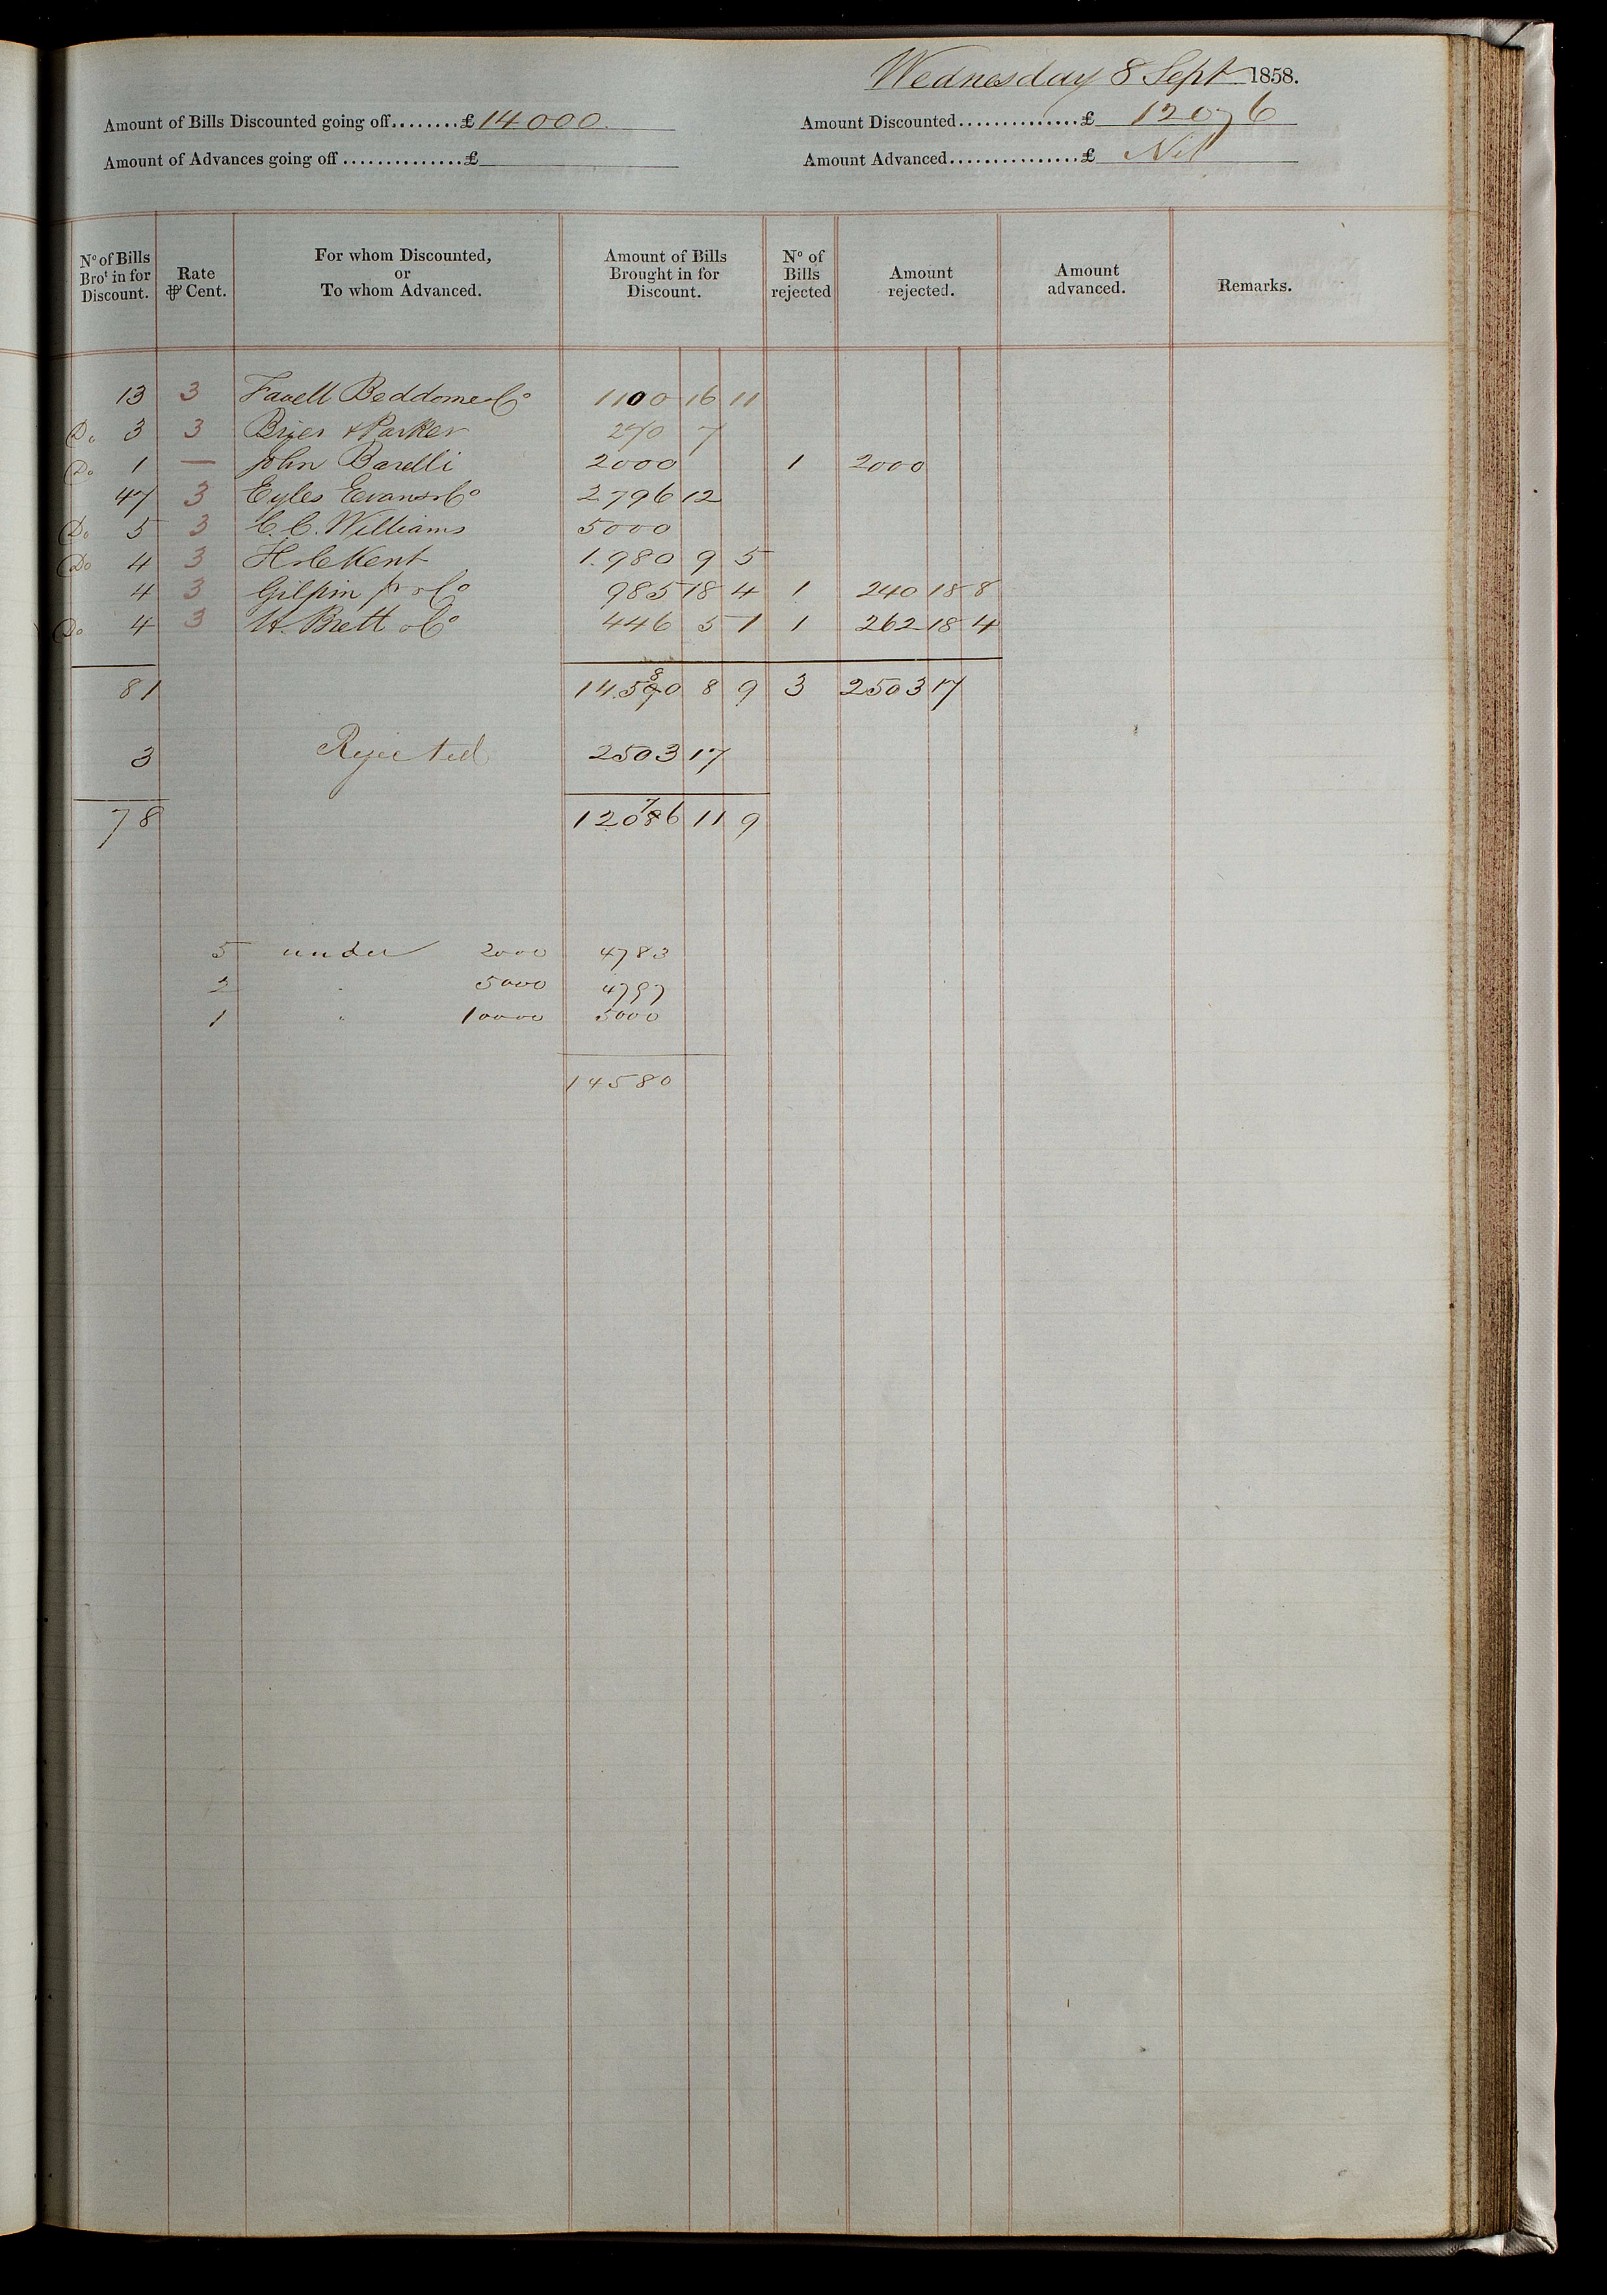 Wednesday 8 Sept 1858.
Amount of Bills Discounted going off........£ 14000 Amount Discounted..............£ 12076
Amount of Advances going off..............£ Amount Advanced...............£ Nil
No of Bills Brot in for Discount. Rate ⅌ Cent. For whom Discounted, or To whom Advanced. Amount of Bills Brought in for Discount. No of Bills rejected Amount rejected. Amount advanced. Remarks.
13 3 Favell Beddome & Co 1100 16 11
Do 3 3 Brier & Parker 270 7
Do 1 — John Barelli 2000 1 2000
47 3 Eyles Evans & Co 2796 12
Do 5 3 C. C. Williams 5000
Do 4 3 Kent 1.980 9 5
4 3 Gilpin Jr & Co 985 18 4 1 240 18 8
Do 4 3 W. Brett & Co 446 5 1 1 262 18 4
81 14.580 8 9 3 2503 17
3 Rejected 2503 17
78 12076 11 9
5 under 2000 4783
2 " 5000 4797
1 " 10000 5000
14580